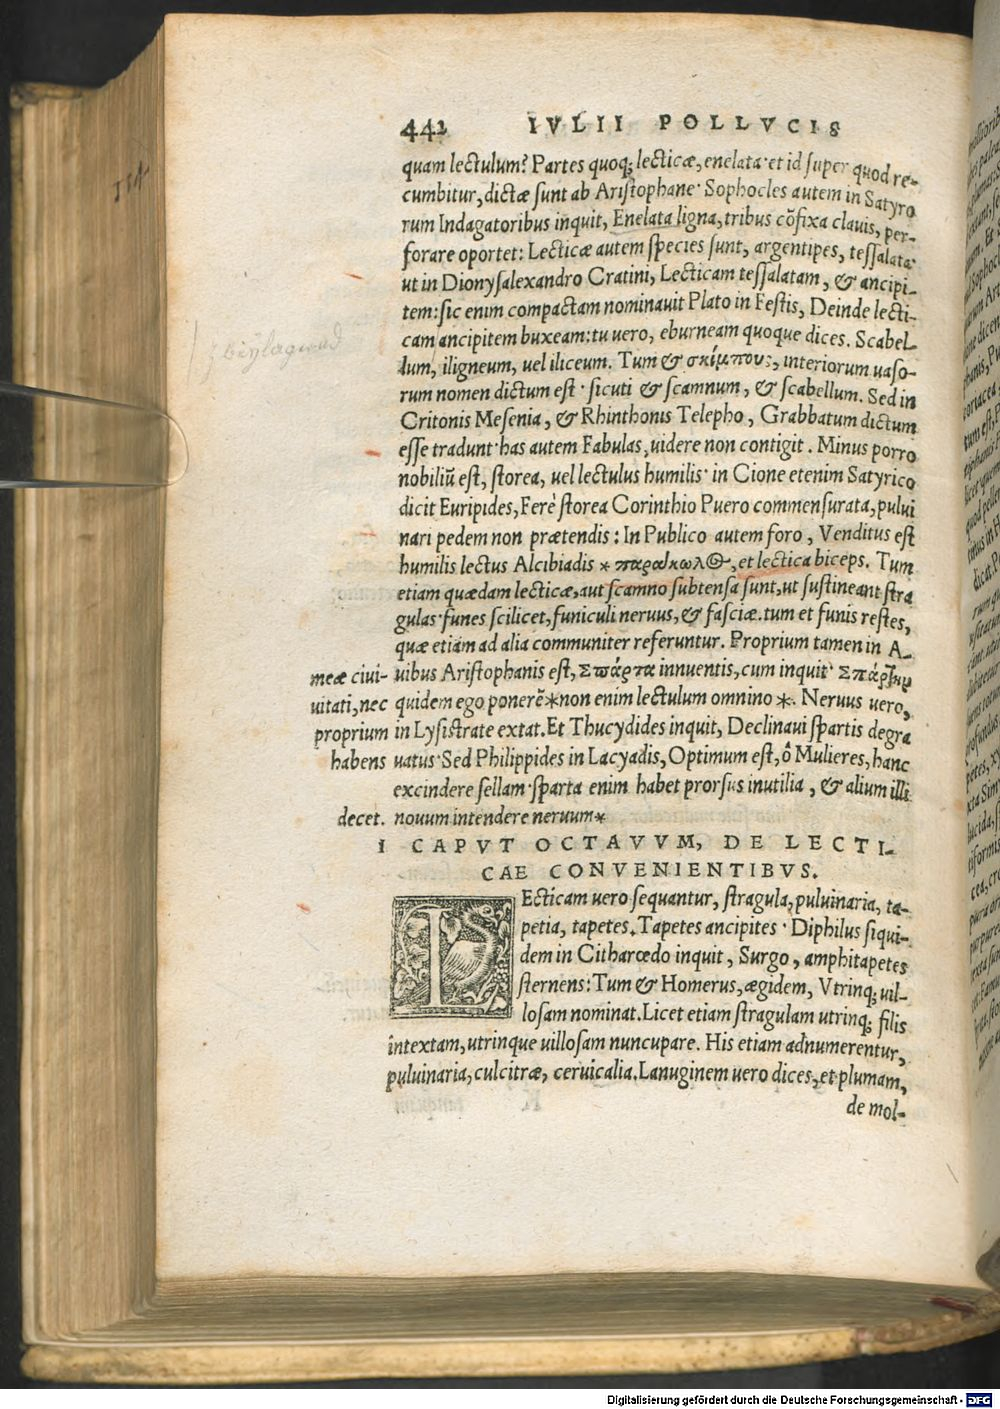 442 IVLII POLLVCIS
quam lectulum? Partes quoq; lecticæ, enelata· et id super quod re-
cumbitur, dictæ sunt ab Aristophane· Sophocles autem in Satyro
rum Indagatoribus inquit, Enelata ligna, tribus cõfixa clauis, per-
forare oportet: Lecticæ autem species sunt, argentipes, tessalata·
ut in Dionysalexandro Cratini, Lecticam tessalatam, & ancipi-
tem: sic enim compactam nominauit Plato in Festis, Deinde lecti-
cam ancipitem buxeam: tu uero, eburneam quoque dices. Scabel-
lum, iligneum, uel iliceum. Tum & σκίμπους, interiorum uaso-
rum nomen dictum est· sicuti & scamnum, & scabellum. Sed in
Critonis Mesenia, & Rhinthonis Telepho, Grabbatum dictum
esse tradunt· has autem Fabulas, uidere non contigit. Minus porro
nobiliũ est, storea, uel lectulus humilis· in Cione etenim Satyrico
dicit Euripides, Ferè storea Corinthio Puero commensurata, pului
nari pedem non prætendis: In Publico autem foro, Venditus est
humilis lectus Alcibiadis * , et lectica biceps. Tum
etiam quædam lecticæ, aut scamno subtensa sunt, ut sustineant stra
gulas· funes scilicet, funiculi neruus, & fasciæ. tum et funis restes,
quæ etiam ad alia communiter referuntur. Proprium tamen in A-
meæ ciui- uibus Aristophanis est, Σπάρτα innuentis, cum inquit·
uitati, nec quidem ego ponerẽ * non enim lectulum omnino *. Neruus uero,
proprium in Lysistrate extat. Et Thucydides inquit, Declinaui spartis degra
habens uatus· Sed Philippides in Lacyadis, Optimum est, ô Mulieres, hanc
excindere sellam· sparta enim habet prorsus inutilia, & alium illi
decet. nouum intendere neruum *
I CAPVT OCTAVVM, DE LECTI-
CAE CONVENIENTIBVS.
LEcticam uero sequantur, stragula, puluinaria, ta-
petia, tapetes. Tapetes ancipites· Diphilus siqui-
dem in Citharœdo inquit, Surgo, amphitapetes
sternens: Tum & Homerus, ægidem, Vtrinq; uil-
losam nominat. Licet etiam stragulam utrinq; filis
intextam, utrinque uillosam nuncupare. His etiam adnumerentur,
puluinaria, culcitræ, ceruicalia. Lanuginem uero dices, et plumam,
de mol-
Digitalisierung gefördert durch die Deutsche Forschungsgemeinschaft - DFG